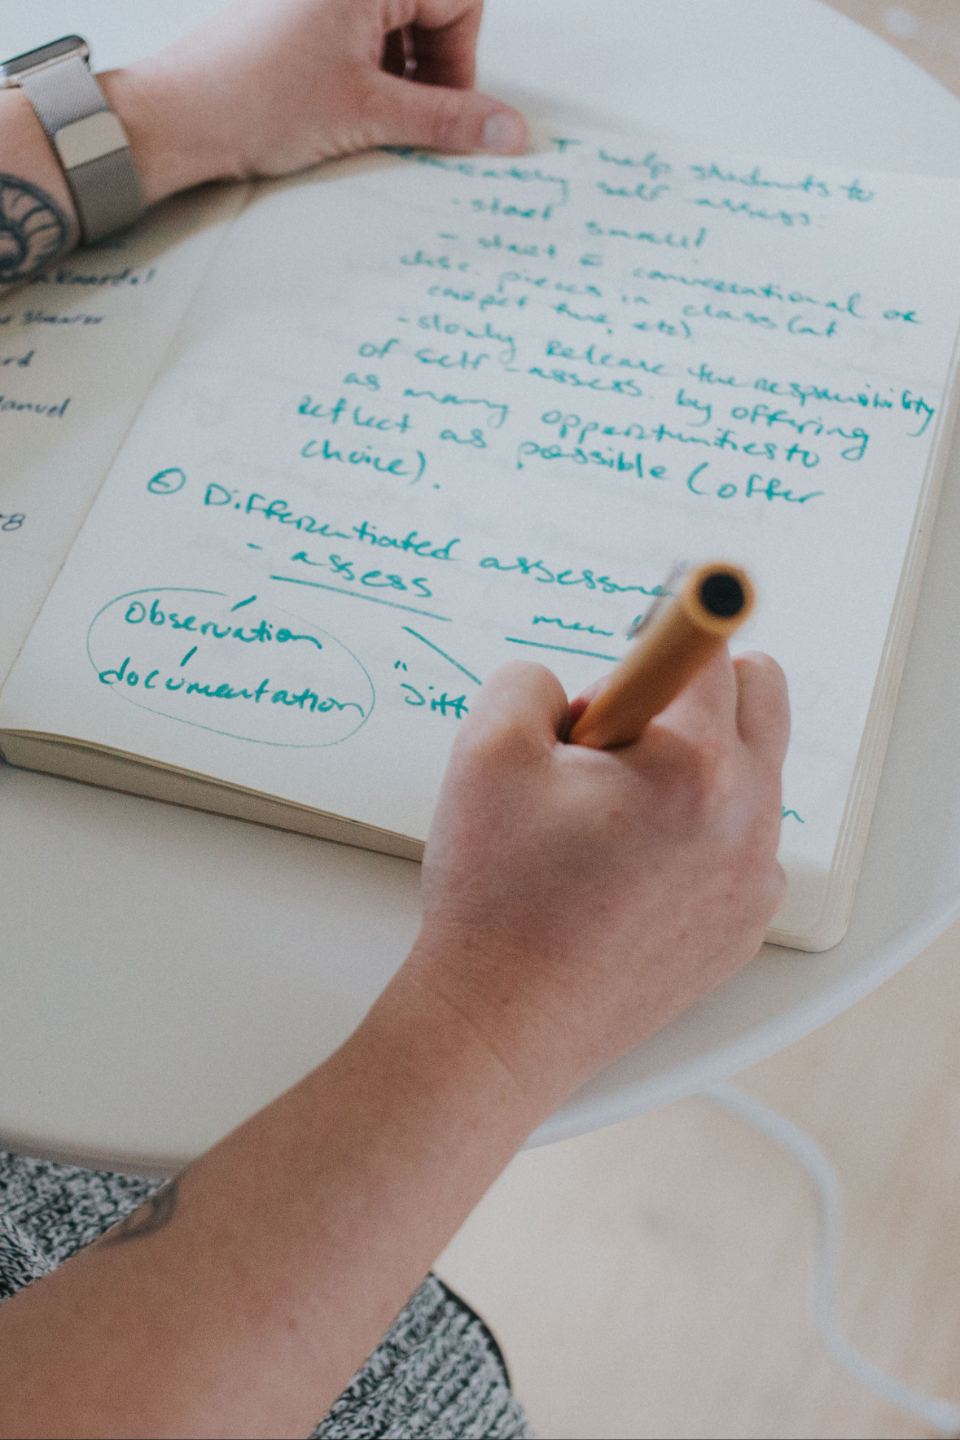 help students to
self assess:
- start small!
- start conversational or
disc. pieces in class (at
carpet time, etc)
- slowly release the responsibility
of self-assess. by offering
as many opportunities to
reflect as possible (offer
choice).
Differentiated assessme
- assess
observation
documentation
"Diff